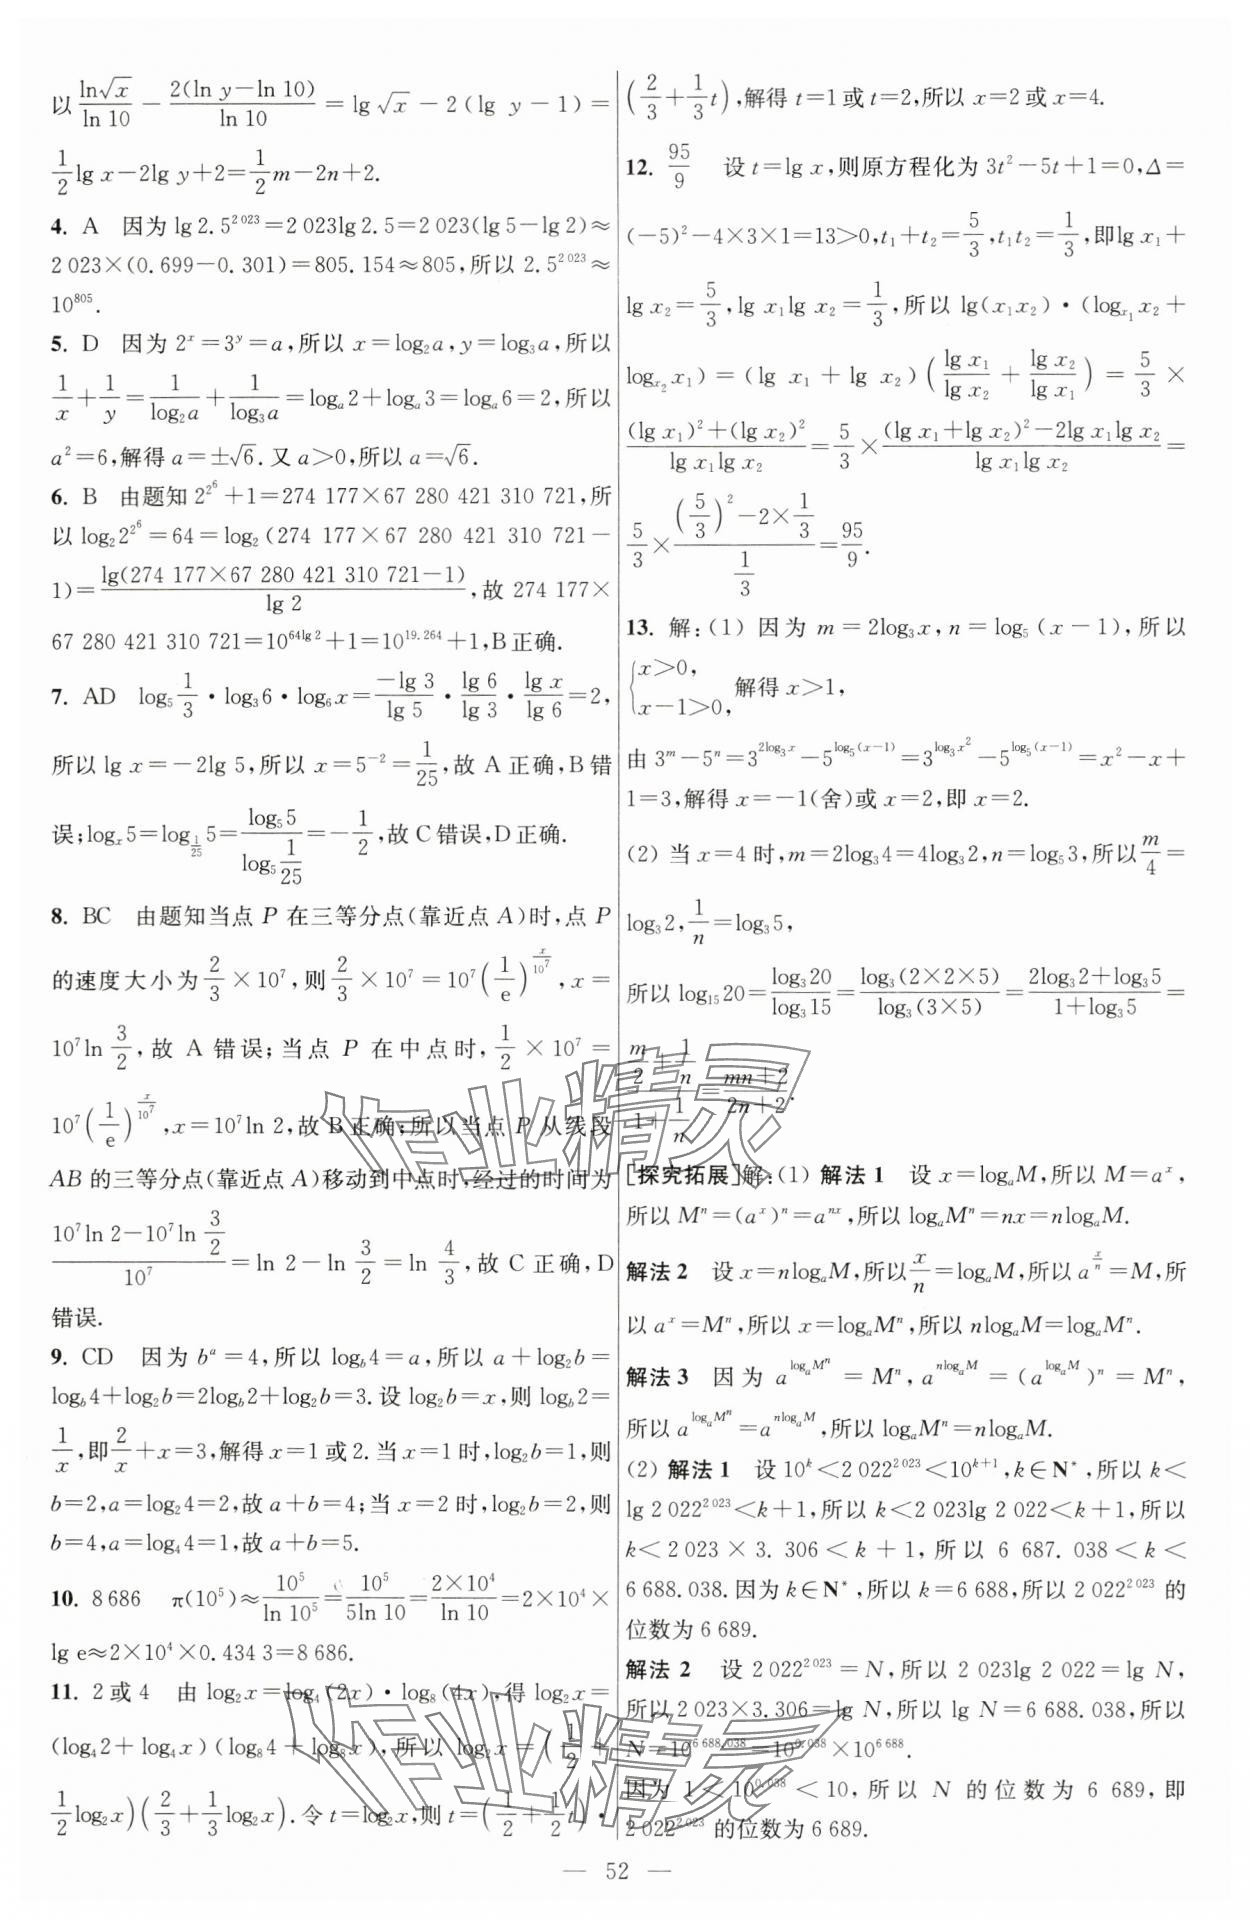 以 (ln√x)/(ln 10) − (2(ln y−ln 10))/(ln 10) = lg √x − 2(lg y−1) =
1/2 lg x−2lg y+2=1/2 m−2n+2.
4. A 因为 lg 2.5^{2 023}=2 023lg 2.5=2 023(lg 5−lg 2)≈
2 023×(0.699−0.301)=805.154≈805,所以 2.5^{2 023}≈
10^{805}.
5. D 因为 2^x=3^y=a,所以 x=log₂a,y=log₃a,所以
1/x+1/y=1/(log₂a)+1/(log₃a)=logₐ2+logₐ3=logₐ6=2,所以
a²=6,解得 a=±√6.又 a>0,所以 a=√6.
6. B 由题知 2^{2^6}+1=274 177×67 280 421 310 721,所
以 log₂2^{2^6}=64=log₂(274 177×67 280 421 310 721−
1)=(lg(274 177×67 280 421 310 721−1))/(lg 2),故 274 177×
67 280 421 310 721=10^{64lg 2}+1=10^{19.264}+1,B 正确.
7. AD log₅ 1/3·log₃6·log₆x=(−lg 3)/(lg 5)·(lg 6)/(lg 3)·(lg x)/(lg 6)=2,
所以 lg x=−2lg 5,所以 x=5^{−2}=1/25,故 A 正确,B 错
误;logₓ5=log_{1/25}5=(log₅5)/(log₅ 1/25)=−1/2,故 C 错误,D 正确.
8. BC 由题知当点 P 在三等分点(靠近点 A)时,点 P
的速度大小为 2/3×10⁷,则 2/3×10⁷=10⁷(1/e)^{x/10⁷},x=
10⁷ln 3/2,故 A 错误;当点 P 在中点时,1/2×10⁷=
10⁷(1/e)^{x/10⁷},x=10⁷ln 2,故 B 正确;所以当点 P 从线段
AB 的三等分点(靠近点 A)移动到中点时,经过的时间为
(10⁷ln 2−10⁷ln 3/2)/10⁷=ln 2−ln 3/2=ln 4/3,故 C 正确,D
错误.
9. CD 因为 b^a=4,所以 log_b4=a,所以 a+log₂b=
log_b4+log₂b=2log_b2+log₂b=3.设 log₂b=x,则 log_b2=
1/x,即2/x+x=3,解得 x=1 或 2.当 x=1 时,log₂b=1,则
b=2,a=log₂4=2,故 a+b=4;当 x=2 时,log₂b=2,则
b=4,a=log₄4=1,故 a+b=5.
10. 8 686 π(10⁵)≈10⁵/(ln 10⁵)=10⁵/(5ln 10)=(2×10⁴)/(ln 10)=2×10⁴×
lg e≈2×10⁴×0.434 3=8 686.
11. 2 或 4 由 log₂x=log₄(2x)·log₈(4x),得 log₂x=
(log₄2+log₄x)(log₈4+log₈x),所以 log₂x=(1/2+
1/2 log₂x)(2/3+1/3 log₂x).令 t=log₂x,则 t=(1/2+1/2 t)·
(2/3+1/3 t),解得 t=1 或 t=2,所以 x=2 或 x=4.
12. 95/9 设 t=lg x,则原方程化为 3t²−5t+1=0,Δ=
(−5)²−4×3×1=13>0,t₁+t₂=5/3,t₁t₂=1/3,即 lg x₁+
lg x₂=5/3,lg x₁lg x₂=1/3,所以 lg(x₁x₂)·(log_{x₁}x₂+
log_{x₂}x₁)=(lg x₁+lg x₂)((lg x₁)/(lg x₂)+(lg x₂)/(lg x₁))=5/3×
((lg x₁)²+(lg x₂)²)/(lg x₁lg x₂)=5/3×((lg x₁+lg x₂)²−2lg x₁lg x₂)/(lg x₁lg x₂)=
5/3×((5/3)²−2×1/3)/(1/3)=95/9.
13. 解:(1) 因为 m=2log₃x,n=log₅(x−1),所以
{x>0,
x−1>0, 解得 x>1,
由 3^m−5^n=3^{2log₃x}−5^{log₅(x−1)}=3^{log₃x²}−5^{log₅(x−1)}=x²−x+
1=3,解得 x=−1(舍)或 x=2,即 x=2.
(2) 当 x=4 时,m=2log₃4=4log₃2,n=log₅3,所以 m/4=
log₃2,1/n=log₃5,
所以 log₁₅20=(log₃20)/(log₃15)=(log₃(2×2×5))/(log₃(3×5))=(2log₃2+log₃5)/(1+log₃5)=
(m/2+1/n)/(1+1/n)=(mn+2)/(2n+2).
[探究拓展]解:(1) 解法 1 设 x=logₐM,所以 M=a^x,
所以 M^n=(a^x)^n=a^{nx},所以 logₐM^n=nx=nlogₐM.
解法 2 设 x=nlogₐM,所以 x/n=logₐM,所以 a^{x/n}=M,所
以 a^x=M^n,所以 x=logₐM^n,所以 nlogₐM=logₐM^n.
解法 3 因为 a^{logₐM^n}=M^n,a^{nlogₐM}=(a^{logₐM})^n=M^n,
所以 a^{logₐM^n}=a^{nlogₐM},所以 logₐM^n=nlogₐM.
(2) 解法 1 设 10^k<2 022^{2 023}<10^{k+1},k∈N*,所以 k<
lg 2 022^{2 023}<k+1,所以 k<2 023lg 2 022<k+1,所以
k<2 023×3.306<k+1,所以 6 687.038<k<
6 688.038.因为 k∈N*,所以 k=6 688,所以 2 022^{2 023} 的
位数为 6 689.
解法 2 设 2 022^{2 023}=N,所以 2 023lg 2 022=lg N,
所以 2 023×3.306=lg N,所以 lg N=6 688.038,所以
N=10^{6 688.038}=10^{0.038}×10^{6 688}.
因为 1<10^{0.038}<10,所以 N 的位数为 6 689,即
2 022^{2 023} 的位数为 6 689.
— 52 —
作业精灵
作业精灵